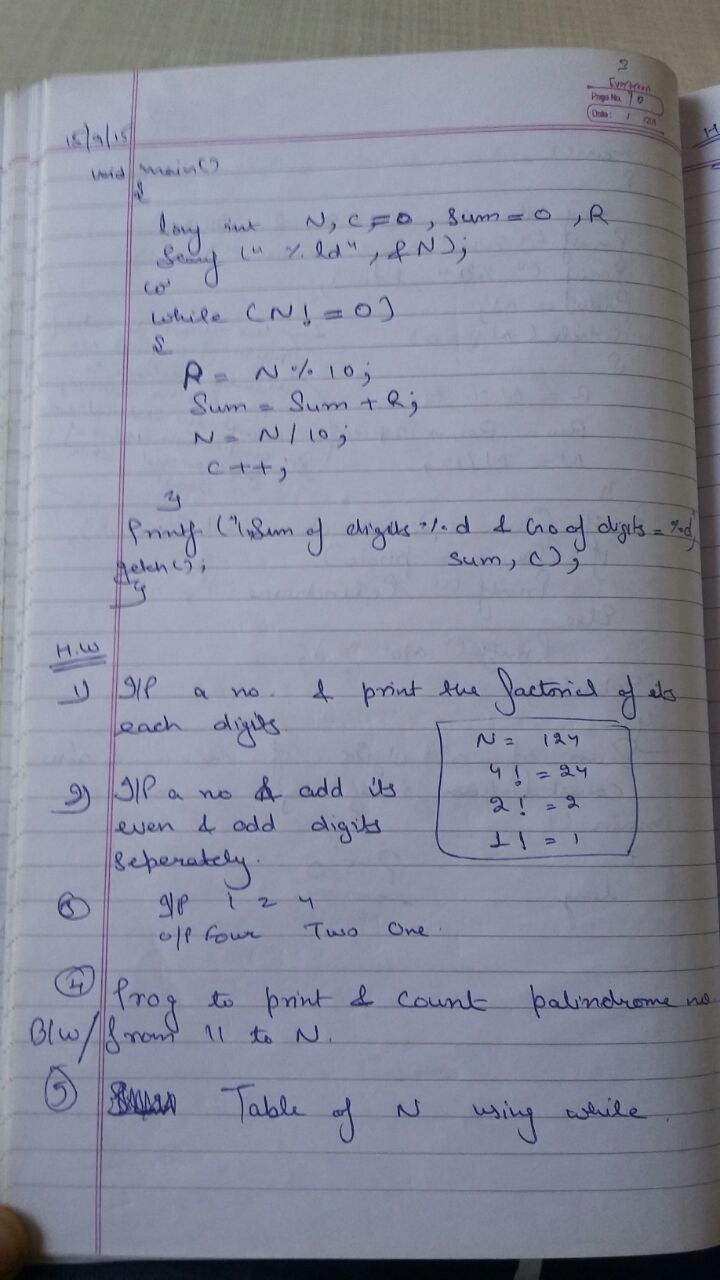 3
Evergreen
Page No. 10
Date: / /201
15/9/15
void main()
{
long int N, C=0, Sum=0, R
Scanf ("%ld", &N);
while (N!=0)
{
R = N % 10;
Sum = Sum + R;
N = N/10;
C++;
}
Printf ("Sum of digits %d & no of digits = %d",
getch(); sum, C);
}
H.W
1) I/P a no. & print the factorial of its
each digits
N = 124
4! = 24
2! = 2
1! = 1
2) I/P a no & add its
even & odd digits
seperately.
3 I/P 1 2 4
O/P Four Two One.
4 Prog to print & count palindrome no
B/W / from 11 to N.
5 Table of N using while.